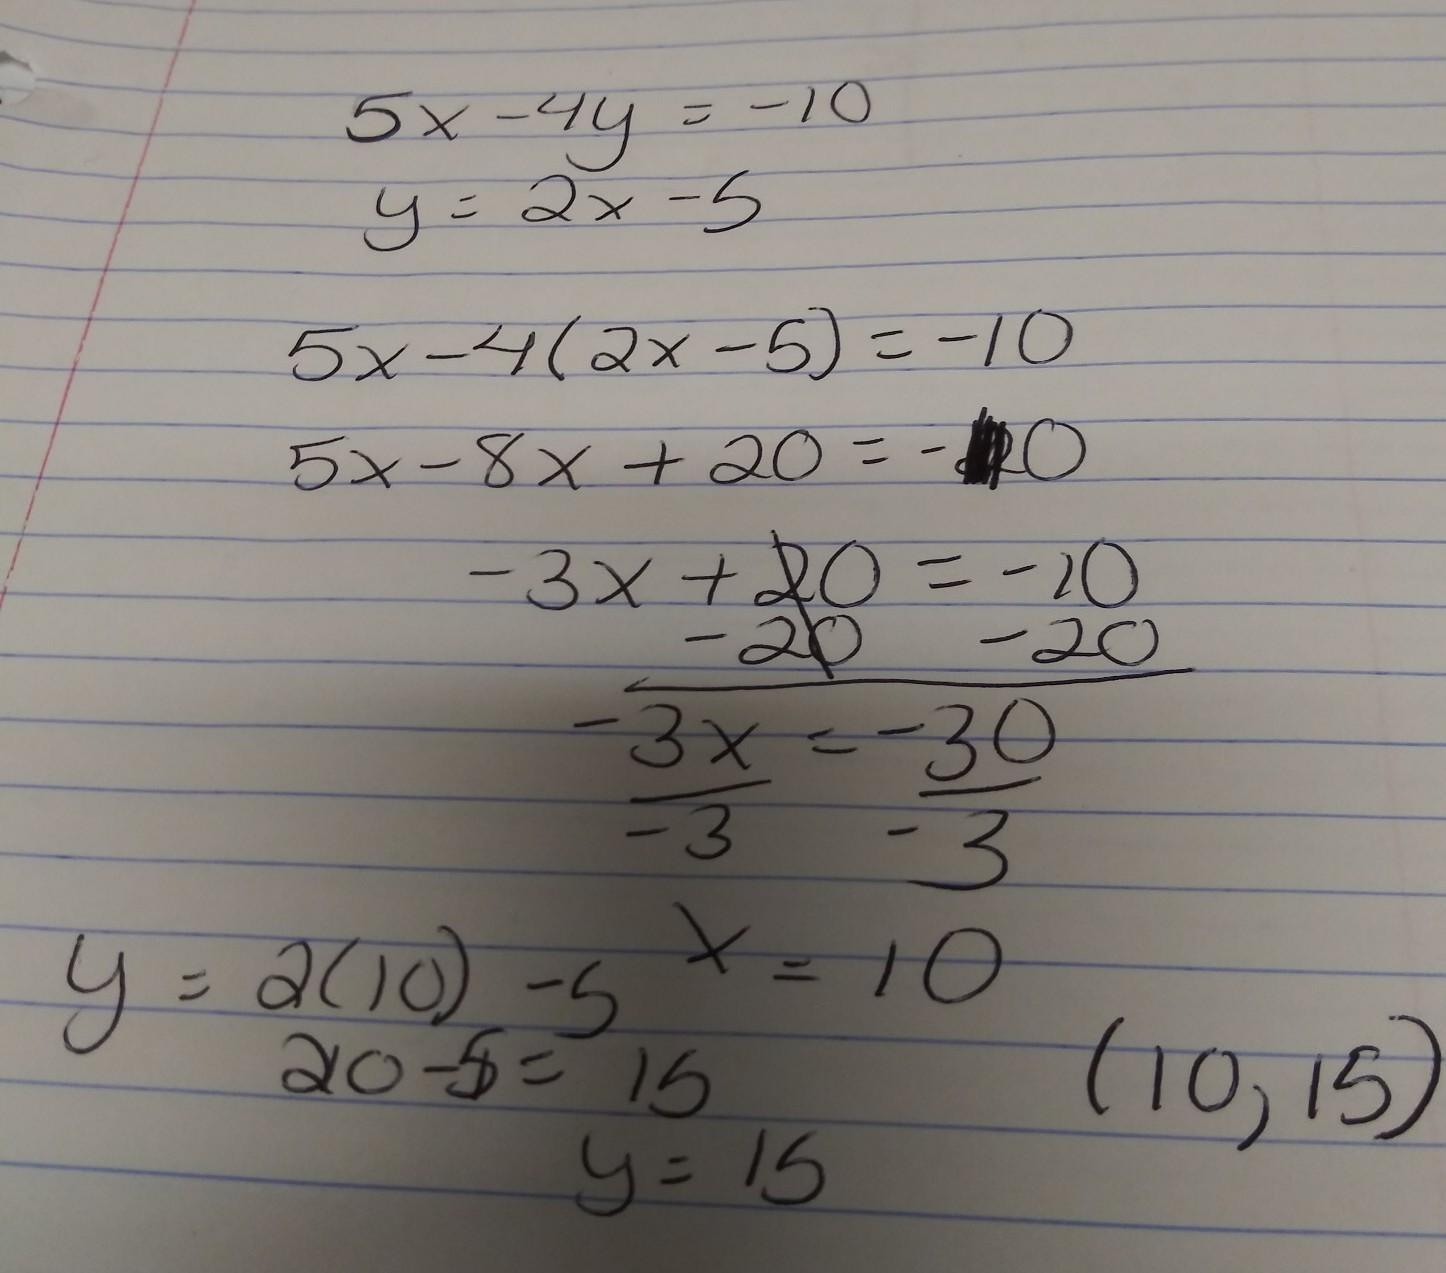 5x - 4y = -10
y = 2x - 5
5x - 4(2x - 5) = -10
5x - 8x + 20 = -10
-3x + 20 = -10
-20 -20
-3x = -30
-3 -3
x = 10
y = 2(10) - 5
20 - 5 = 15
y = 15
(10, 15)